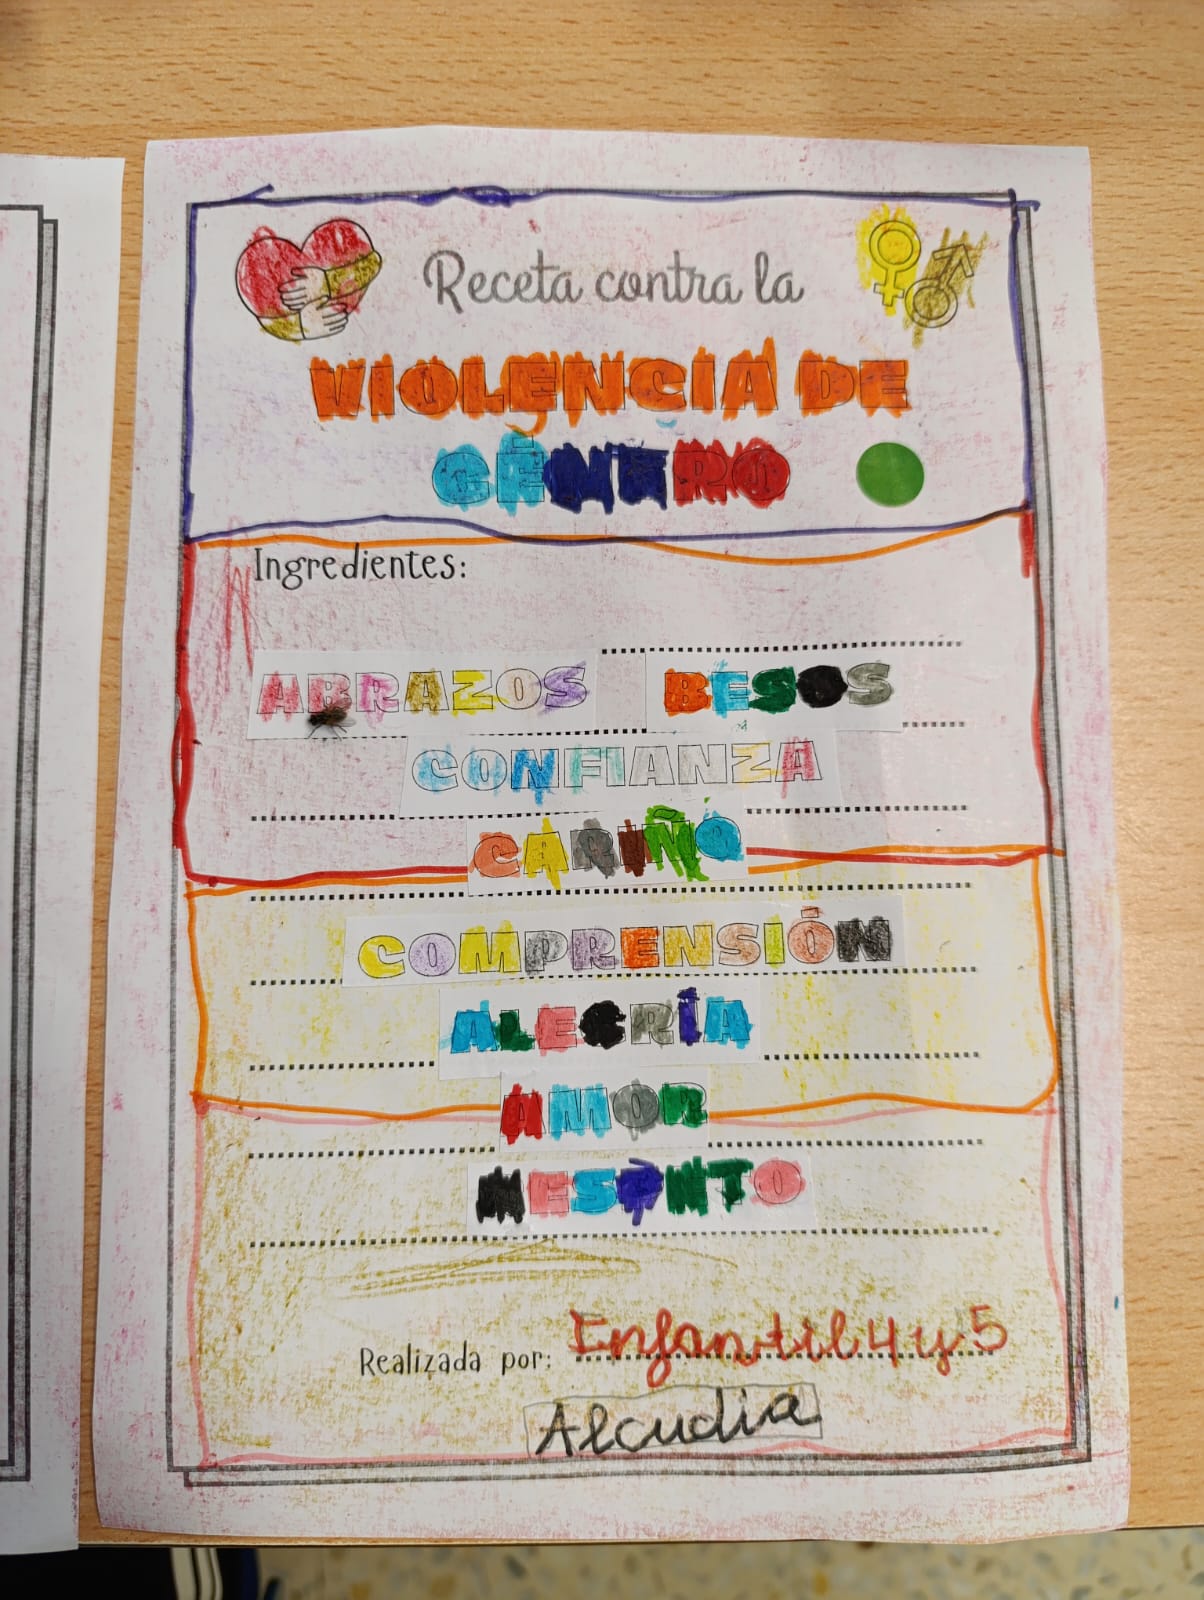 Receta contra la
VIOLENCIA DE
GÉNERO
Ingredientes:
ABRAZOS BESOS
CONFIANZA
CARIÑO
COMPRENSIÓN
ALEGRÍA
AMOR
Realizada por: Infantil 4 y 5
Alcudia